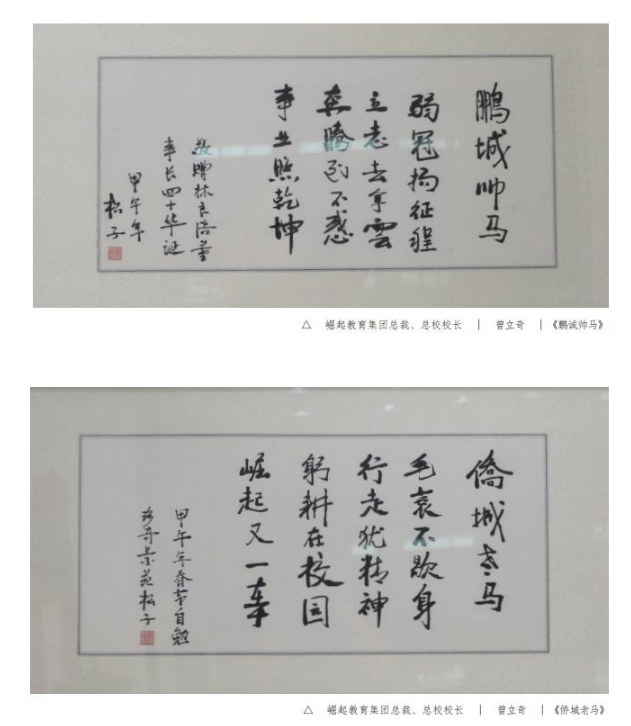 鹏城帅马
弱冠扬征程
立志去争雲
奔腾到不惑
事业照乾坤
敬赠林良浩董
事长四十华诞
甲午年
松子
△ 崛起教育集团总裁、总校校长 | 曾立奇 | 《鹏诚帅马》
僑城老马
毛衰不歇身
行走犹精神
躬耕在校园
崛起又一
甲午年春节自勉
奇景苑松子
△ 崛起教育集团总裁、总校校长 | 曾立奇 | 《侨城老马》